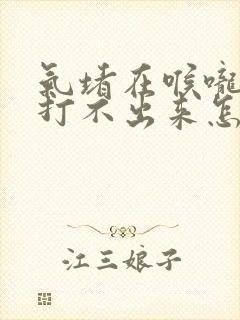 氣堵在喉嚨
打不出来怎
江三娘子